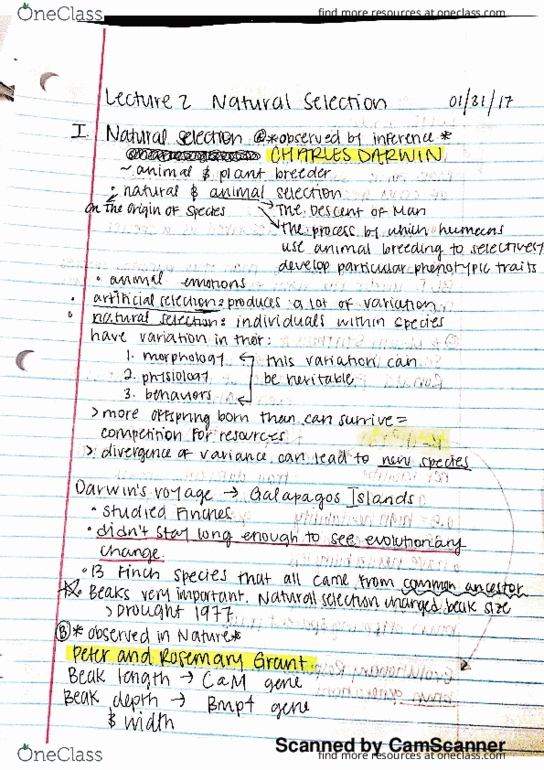 OneClass
find more resources at oneclass.com
Lecture 2 Natural Selection 01/31/17
I. Natural selection @ *observed by inference*
CHARLES DARWIN
~ animal & plant breeder
• natural & animal selection
On the Origin of Species → The Descent of Man
→ the process by which humans
use animal breeding to selectively
develop particular phenotypic traits
• animal emotions
• artificial selection: produces a lot of variation
• natural selection: individuals within species
have variation in their:
1. morphology
this variation can
2. physiology
be heritable
3. behaviors
> more offspring born than can survive =
competition for resources
> divergence of variance can lead to new species
Darwin's voyage → Galapagos Islands
• studied Finches
• didn't stay long enough to see evolutionary
change.
• 13 Finch species that all came from common ancestor
Beaks very important. Natural selection changed beak size
> Drought 1977
B *observed in Nature*
Peter and Rosemary Grant
Beak length → CaM gene
Beak depth → Bmp4 gene
& width
Scanned by CamScanner
OneClass
find more resources at oneclass.com